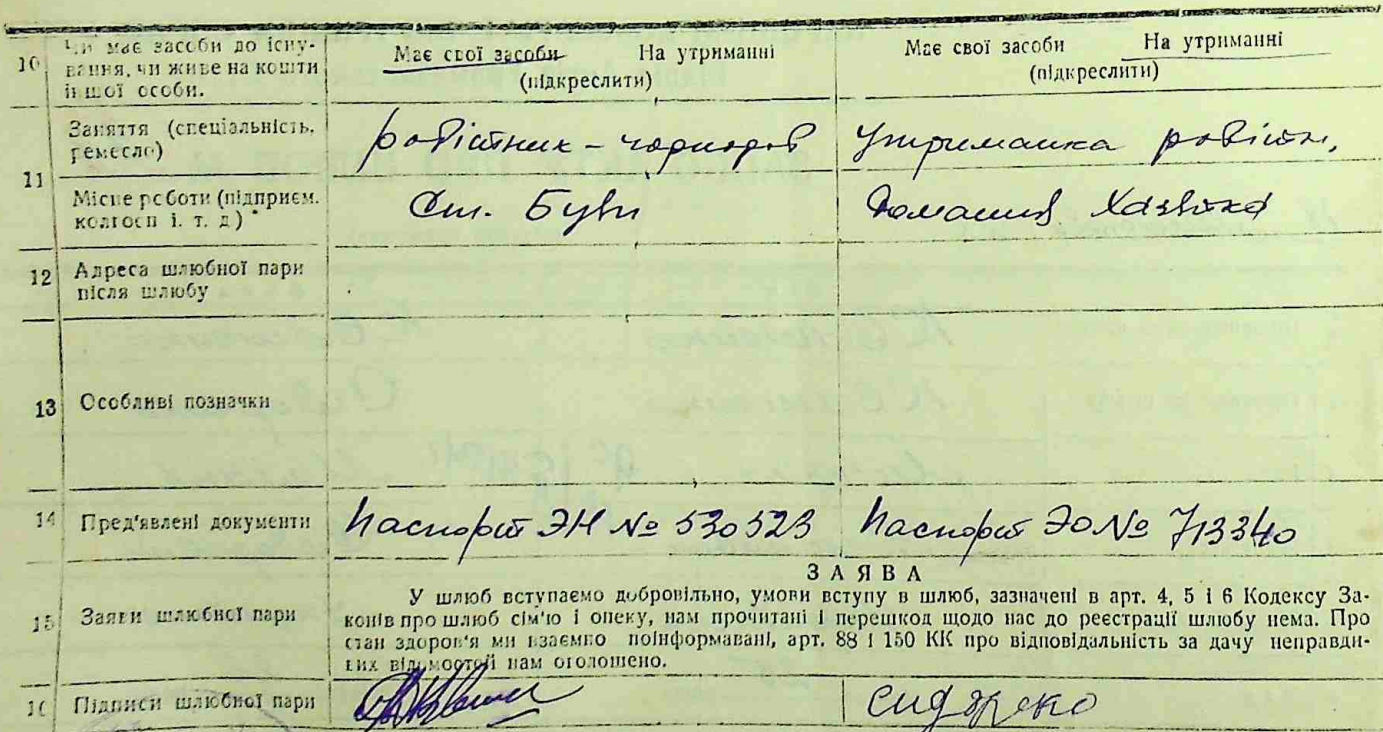 10 Чи має засоби до існу-
вання, чи живе на кошти
іншої особи.
Має свої засоби На утриманні
(підкреслити)
Має свої засоби На утриманні
(підкреслити)
11 Заняття (спеціальність,
ремесло)
робітник - чорнороб
Утриманка робітн,
Місце роботи (підприєм.
колгосп і. т. д)
Ст. Буди
Домашня Хазяйка
12 Адреса шлюбної пари
після шлюбу
13 Особливі позначки
14 Пред'явлені документи
Паспорт ЭН № 530523
Паспорт ЭО № 713340
ЗАЯВА
15 Заяви шлюбної пари
У шлюб вступаємо добровільно, умови вступу в шлюб, зазначені в арт. 4, 5 і 6 Кодексу За-
конів про шлюб сім'ю і опеку, нам прочитані і перешкод щодо нас до реєстрації шлюбу нема. Про
стан здоров'я ми взаємно поінформавані, арт. 88 і 150 КК про відповідальність за дачу неправди-
вих відомостей нам оголошено.
16 Підписи шлюбної пари